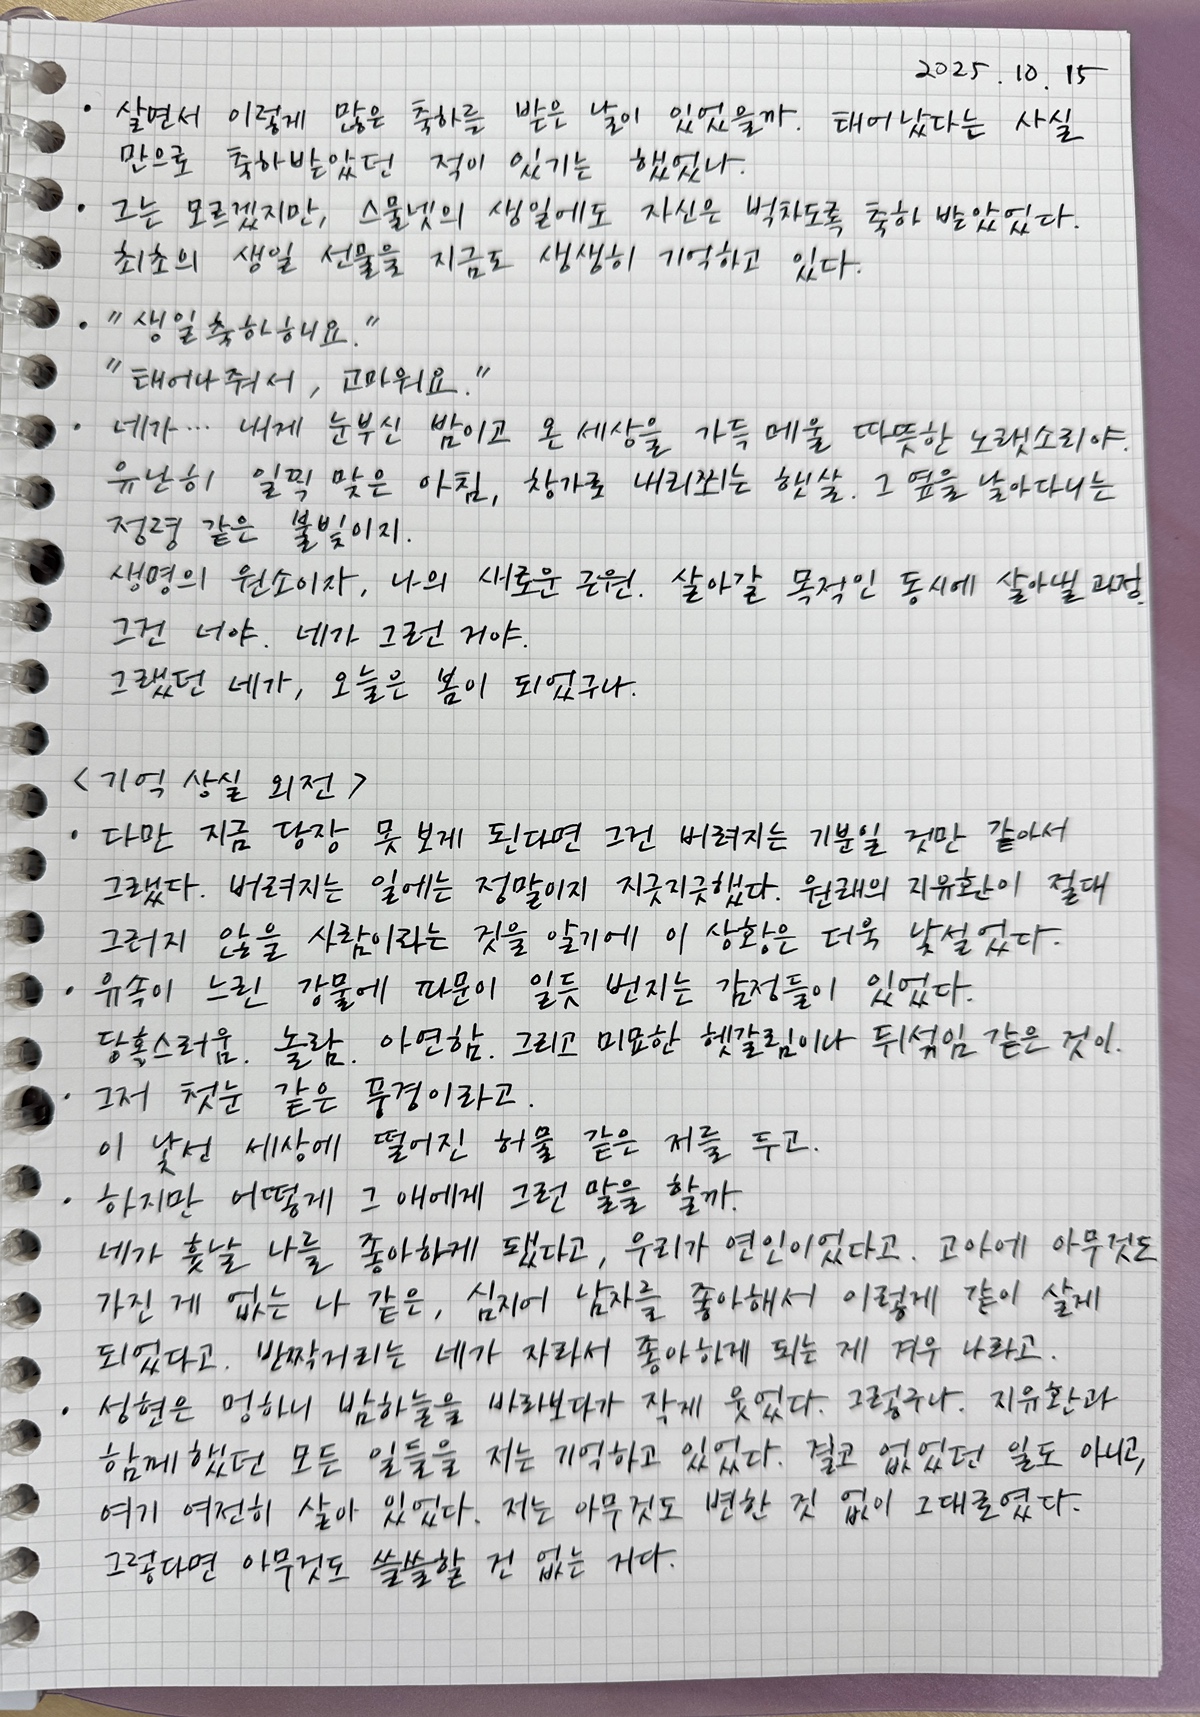 2025. 10. 15
• 살면서 이렇게 많은 축하를 받은 날이 있었을까. 태어났다는 사실
만으로 축하받았던 적이 있기는 했었나.
• 그는 모르겠지만, 스물넷의 생일에도 자신은 벅차도록 축하 받았었다.
최초의 생일 선물을 지금도 생생히 기억하고 있다.
• "생일축하해요."
"태어나줘서, 고마워요."
• 네가… 내게 눈부신 밤이고 온 세상을 가득 메울 따뜻한 노랫소리야.
유난히 일찍 맞은 아침, 창가로 내리쬐는 햇살. 그 옆을 날아다니는
정령 같은 불빛이지.
생명의 원소이자, 나의 새로운 근원. 살아갈 목적인 동시에 살아낼 과정.
그건 너야. 네가 그런 거야.
그랬던 네가, 오늘은 봄이 되었구나.
<기억 상실 외전>
• 다만 지금 당장 못 보게 된다면 그건 버려지는 기분일 것만 같아서
그랬다. 버려지는 일에는 정말이지 지긋지긋했다. 원래의 지유환이 절대
그러지 않을 사람이라는 것을 알기에 이 상황은 더욱 낯설었다.
• 유속이 느린 강물에 파문이 일듯 번지는 감정들이 있었다.
당혹스러움. 놀람. 아연함. 그리고 미묘한 헷갈림이나 뒤섞임 같은 것이.
• 그저 첫눈 같은 풍경이라고.
이 낯선 세상에 떨어진 허물 같은 저를 두고.
• 하지만 어떻게 그 애에게 그런 말을 할까.
네가 훗날 나를 좋아하게 됐다고, 우리가 연인이었다고. 고아에 아무것도
가진 게 없는 나 같은, 심지어 남자를 좋아해서 이렇게 같이 살게
되었다고. 반짝거리는 네가 자라서 좋아하게 되는 게 겨우 나라고.
• 성현은 멍하니 밤하늘을 바라보다가 작게 웃었다. 그렇구나. 지유환과
함께했던 모든 일들을 저는 기억하고 있었다. 결코 없었던 일도 아니고,
여기 여전히 살아 있었다. 저는 아무것도 변한 것 없이 그대로였다.
그렇다면 아무것도 쓸쓸할 건 없는 거다.